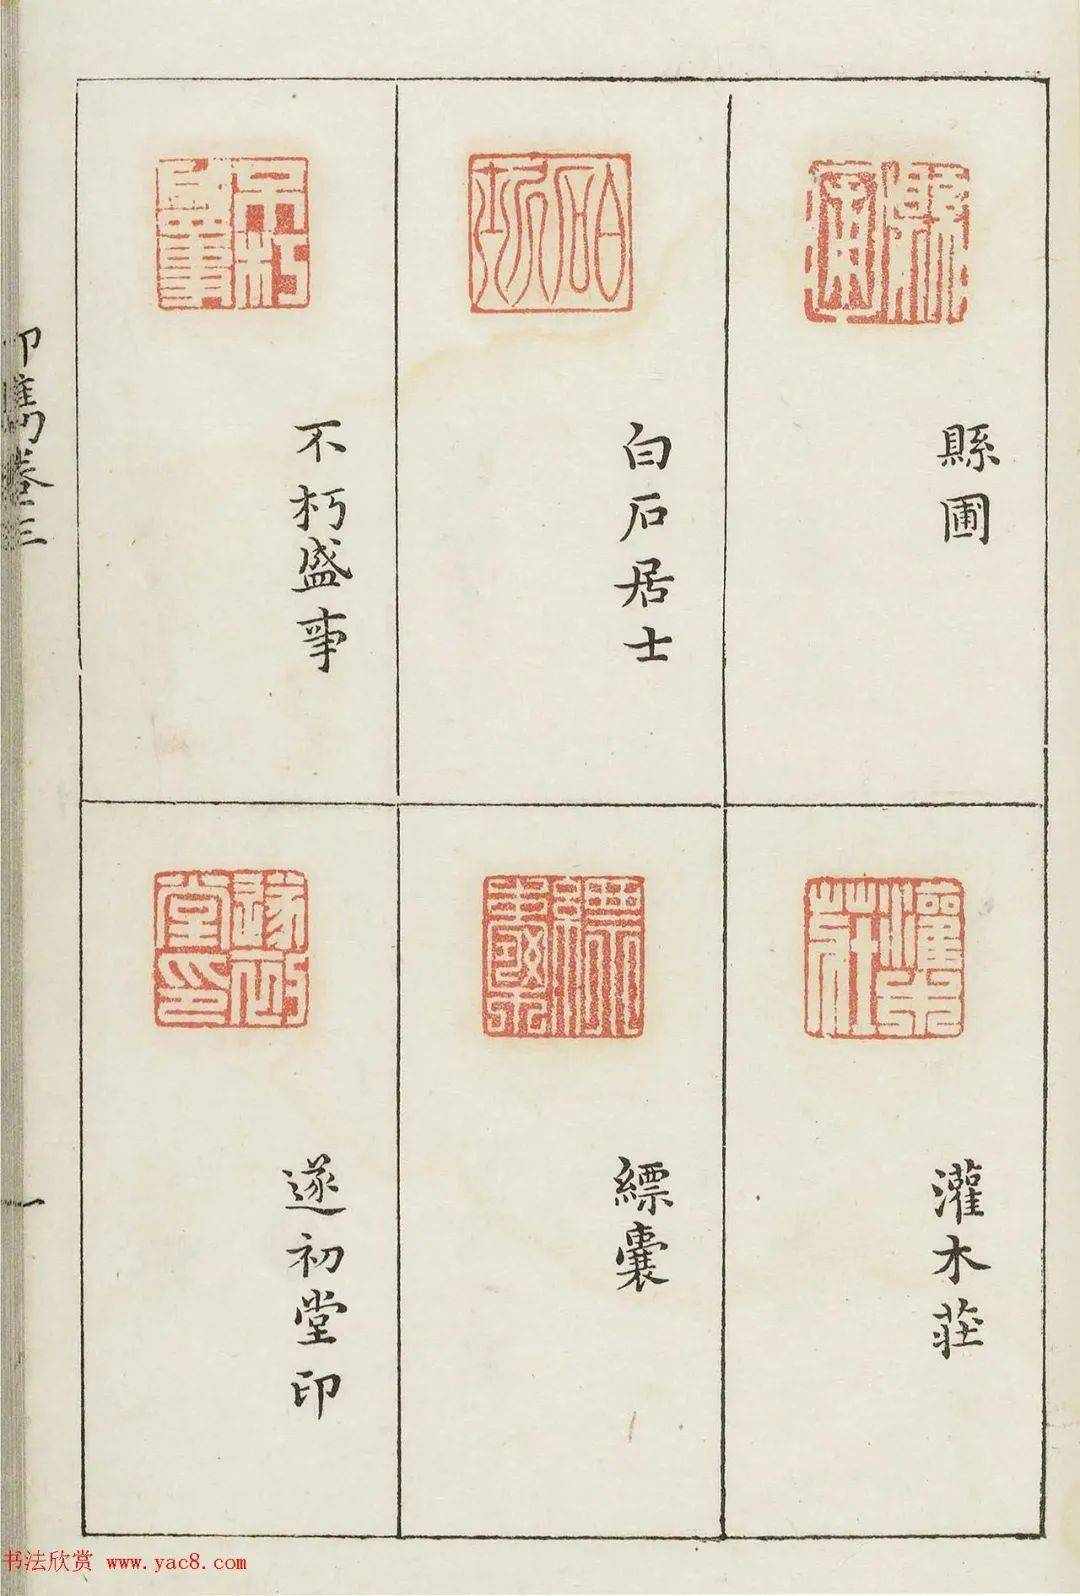 縣圃
白石居士
不朽盛事
灌木莊
縹囊
遂初堂印
印雋卷三
一
书法欣赏 www.yac8.com